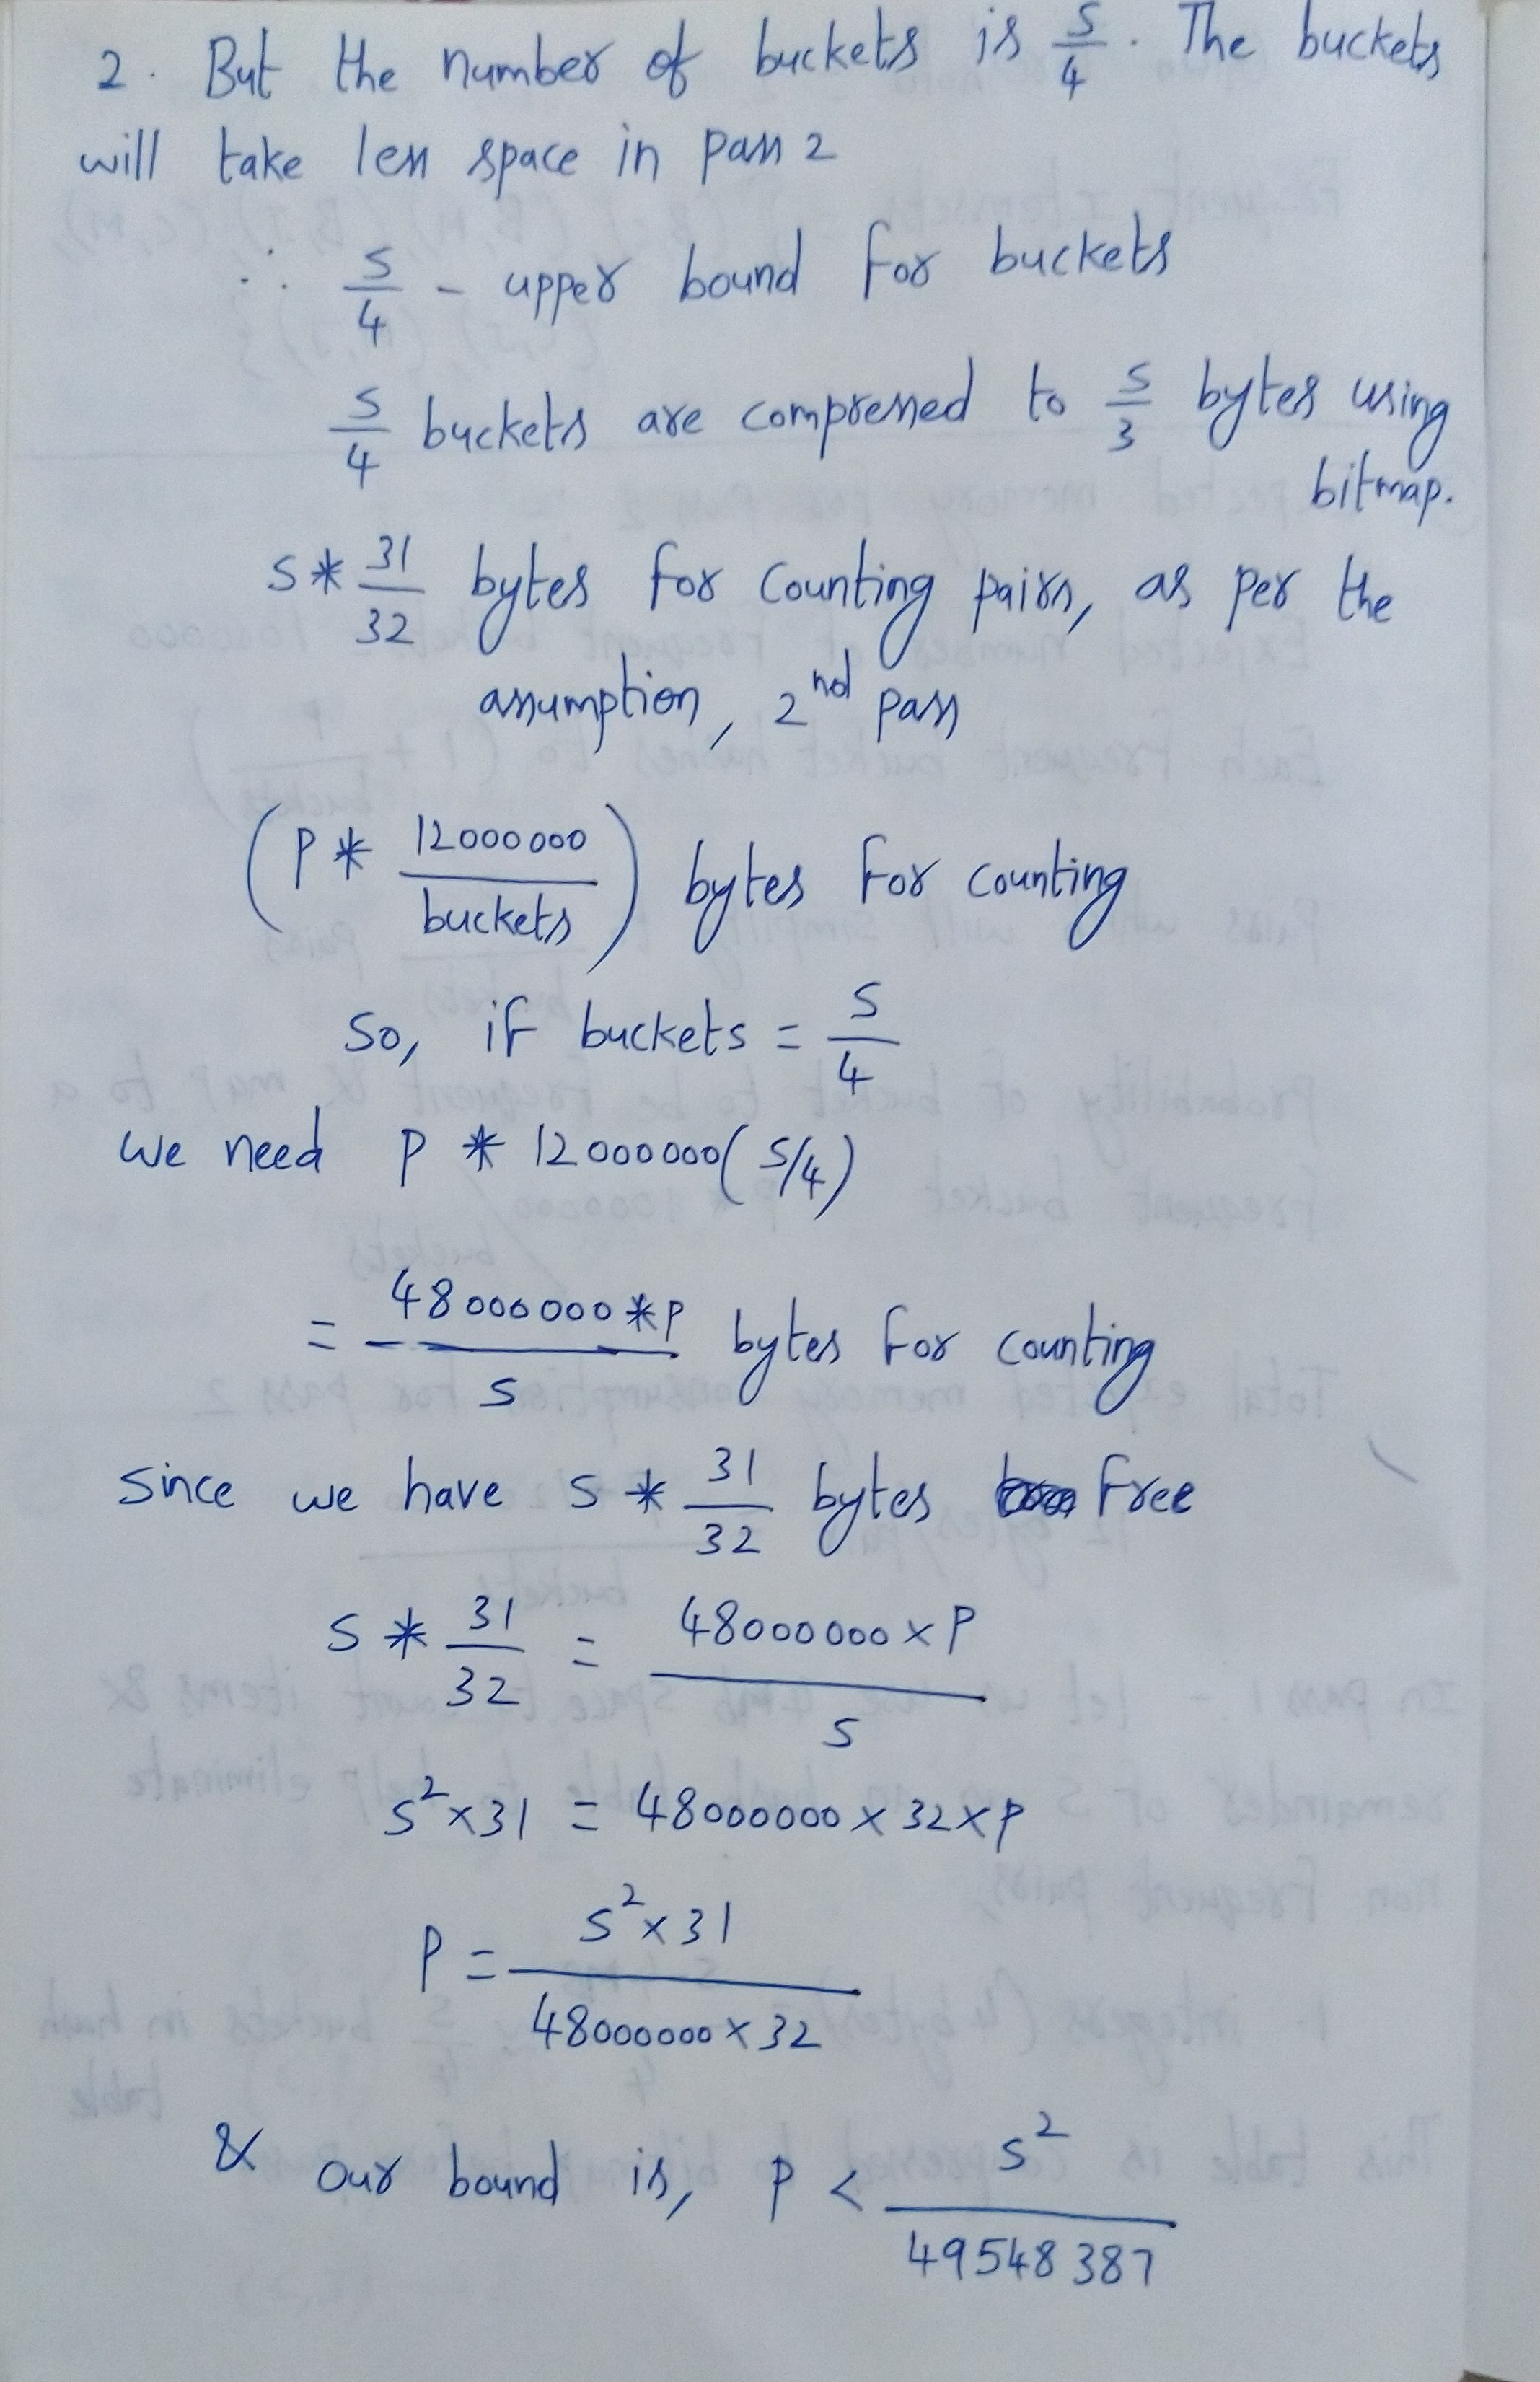 2. But the number of buckets is S/4. The buckets
will take less space in pass 2
∴ S/4 - upper bound for buckets
S/4 buckets are compressed to S/3 bytes using
bitmap.
S * 31/32 bytes for counting pairs, as per the
assumption, 2nd pass
(P * 12000000/buckets) bytes for counting
So, if buckets = S/4
we need P * 12000000(S/4)
= 48000000*P/S bytes for counting
Since we have S * 31/32 bytes free
S * 31/32 = 48000000 x P/S
S² x 31 = 48000000 x 32 x P
P = S² x 31/48000000 x 32
& our bound is, P < S²/49548387